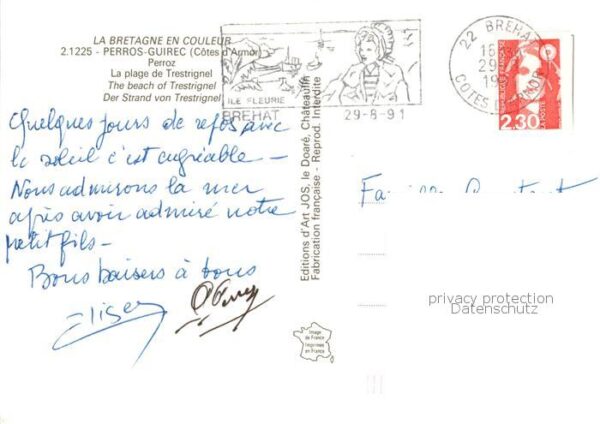 LA BRETAGNE EN COULEUR
2.1225 - PERROS-GUIREC (Côtes d'Armor)
Perroz
La plage de Trestrignel
The beach of Trestrignel
Der Strand von Trestrignel
ILE FLEURIE
BREHAT
29-8-91
22 BREHAT
COTES D'ARMOR
2,30
Quelques jours de repos avec
le soleil c'est agréable -
Nous admirons la mer
après avoir admiré notre
petit fils -
Bons baisers à tous
Editions d'Art JOS, le Doaré, Châteaulin
Fabrication française - Reprod. Interdite
Image
de France
Imprimée
en France
privacy protection
Datenschutz